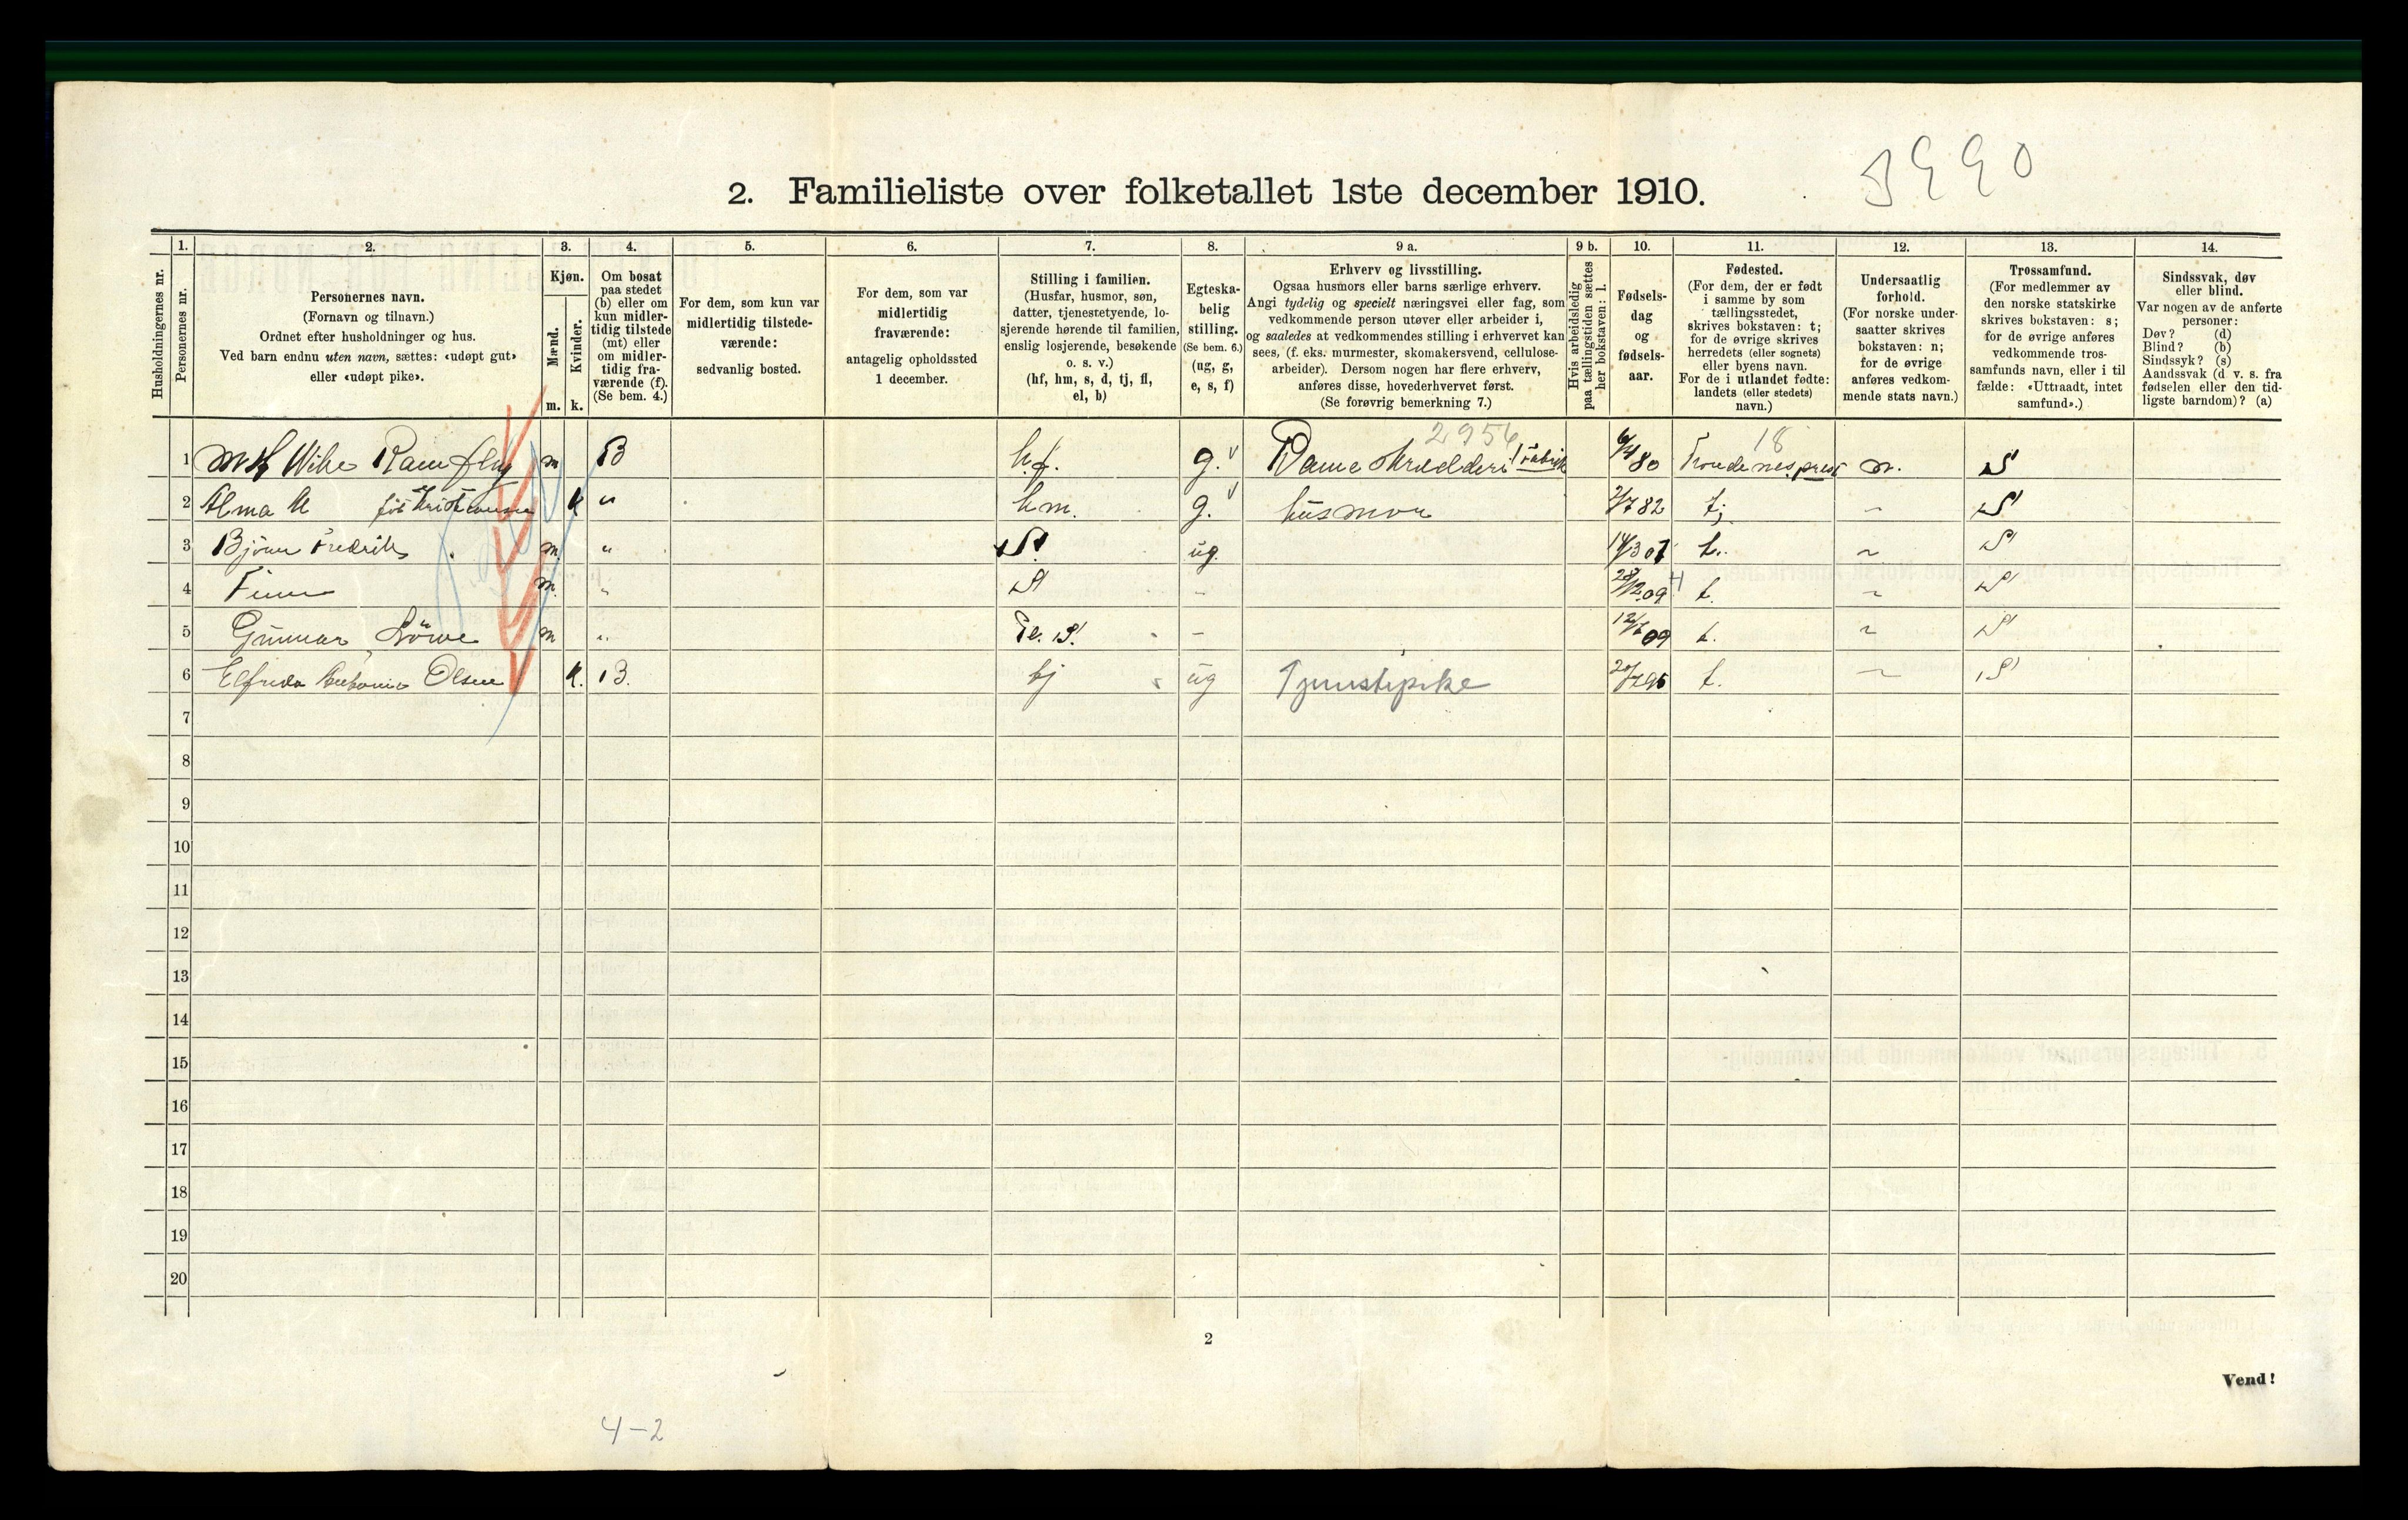 3990
2. Familieliste over folketallet 1ste december 1910.
Husholdningernes nr.
1.
Personernes nr.
2.
Personernes navn.
(Fornavn og tilnavn.)
Ordnet efter husholdninger og hus.
Ved barn endnu uten navn, sættes: «udøpt gut»
eller «udøpt pike».
3.
Kjøn.
Mænd.
Kvinder.
m. k.
4.
Om bosat
paa stedet
(b) eller om
kun midler-
tidig tilstede
(mt) eller
om midler-
tidig fra-
værende (f).
(Se bem. 4.)
5.
For dem, som kun var
midlertidig tilstede-
værende:
sedvanlig bosted.
6.
For dem, som var
midlertidig
fraværende:
antagelig opholdssted
1 december.
7.
Stilling i familien.
(Husfar, husmor, søn,
datter, tjenestetyende, lo-
sjerende hørende til familien,
enslig losjerende, besøkende
o. s. v.)
(hf, hm, s, d, tj, fl,
el, b)
8.
Egteska-
belig
stilling.
(Se bem. 6.)
(ug, g,
e, s, f)
9 a.
Erhverv og livsstilling.
Ogsaa husmors eller barns særlige erhverv.
Angi tydelig og specielt næringsvei eller fag, som
vedkommende person utøver eller arbeider i,
og saaledes at vedkommendes stilling i erhvervet kan
sees, (f. eks. murmester, skomakersvend, cellulose-
arbeider). Dersom nogen har flere erhverv,
anføres disse, hovederhvervet først.
(Se forøvrig bemerkning 7.)
9 b.
Hvis arbeidsledig
paa tællingstiden sættes
her bokstaven: l.
10.
Fødsels-
dag
og
fødsels-
aar.
11.
Fødested.
(For dem, der er født
i samme by som
tællingsstedet,
skrives bokstaven: t;
for de øvrige skrives
herredets (eller sognets)
eller byens navn.
For de i utlandet fødte:
landets (eller stedets)
navn.)
12.
Undersaatlig
forhold.
(For norske under-
saatter skrives
bokstaven: n;
for de øvrige
anføres vedkom-
mende stats navn.)
13.
Trossamfund.
(For medlemmer av
den norske statskirke
skrives bokstaven: s;
for de øvrige anføres
vedkommende tros-
samfunds navn, eller i til
fælde: «Uttraadt, intet
samfund».)
14.
Sindssvak, døv
eller blind.
Var nogen av de anførte
personer:
Døv? (d)
Blind? (b)
Sindssyk? (s)
Aandssvak (d v. s. fra
fødselen eller den tid-
ligste barndom)? (a)
2956 18
1 Wike m B hf. g. Dame skrædderi fabrik 6/4 80 Trondenes prest n. S
2 Alma M k " hm. g. husmor 2/7 82 t; ~ S
3 Bjørn Fredrik m. " S. ug. t. ~ S
4 Finn m. " S - 09 t. ~ S
5 Gunnar Löwe m " S. - 09 t. ~ S
6 Elfrida Olsen k. B. tj ug Tjenestepike t. ~ S
7
8
9
10
11
12
13
14
15
16
17
18
19
20
2
Vend!
4-2